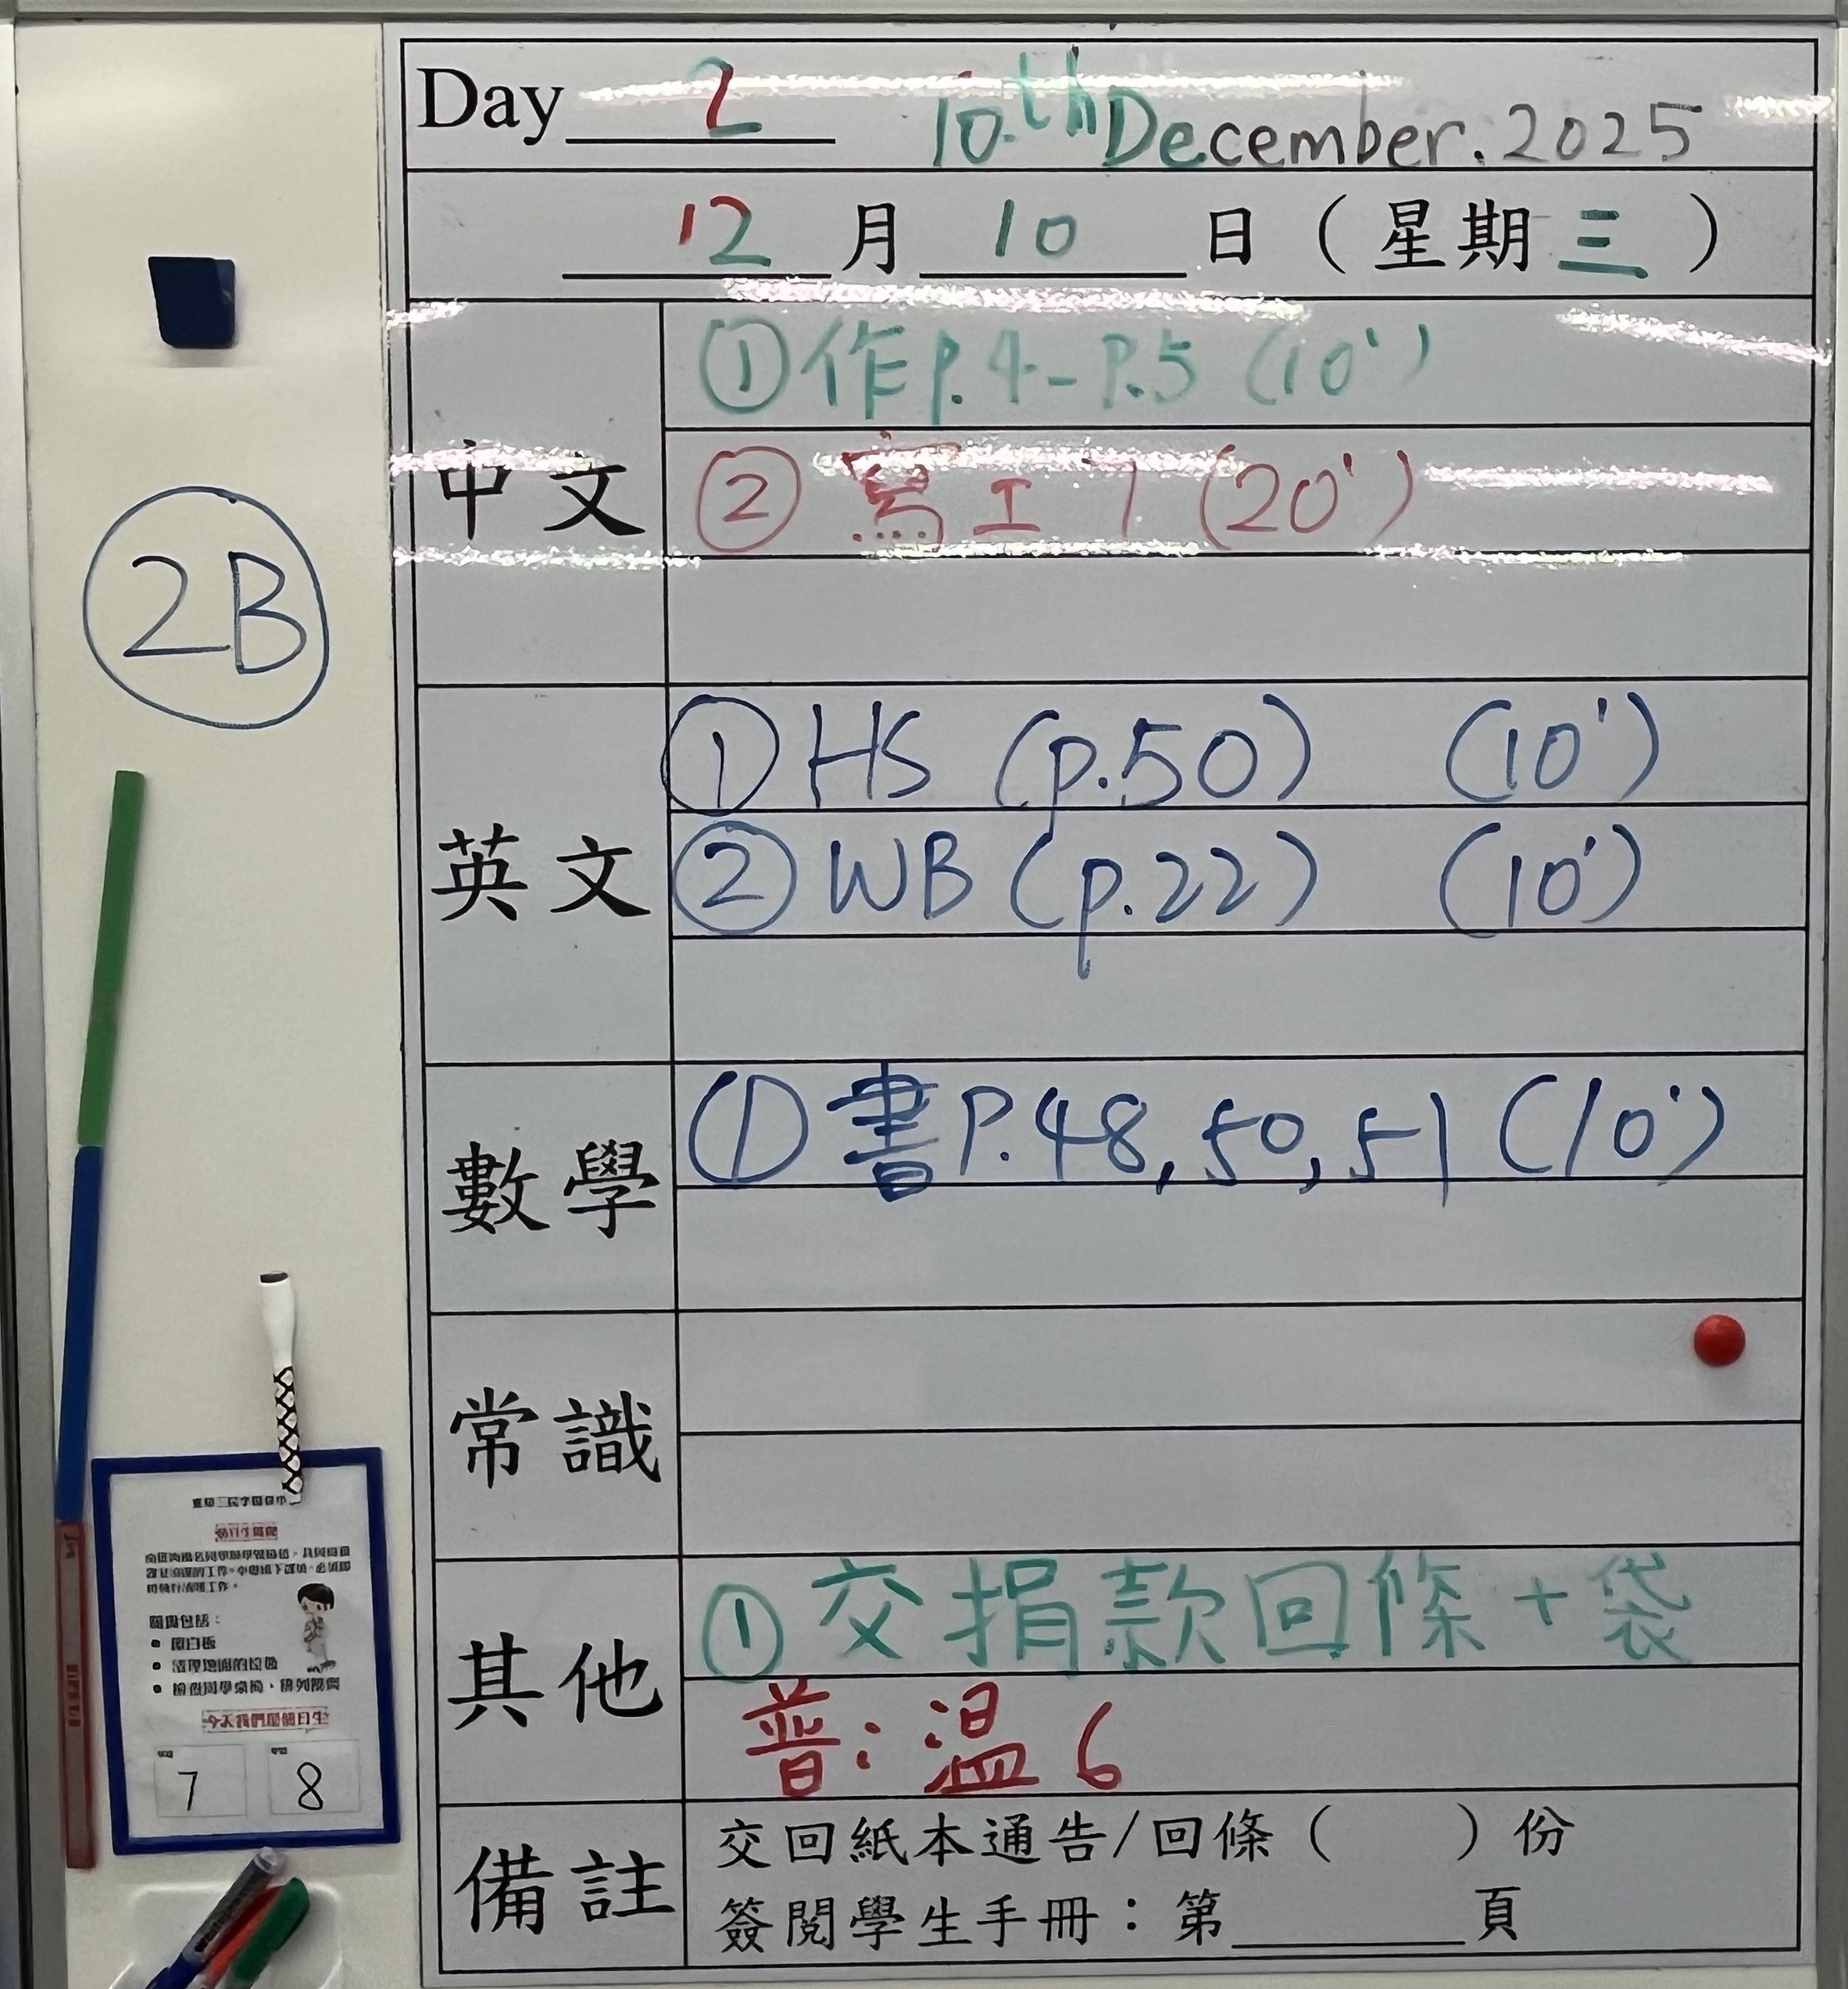 Day 2 10.th December.2025
12月10日(星期三)
中文
①作P.4-P.5 (10')
②寫工7 (20')
2B
英文
①HS (p.50) (10')
②WB (p.22) (10')
數學
①書P.48,50,51 (10')
常識
其他
①交捐款回條+袋
普:溫6
備註
交回紙本通告/回條( )份
簽閱學生手冊:第______頁
7 8